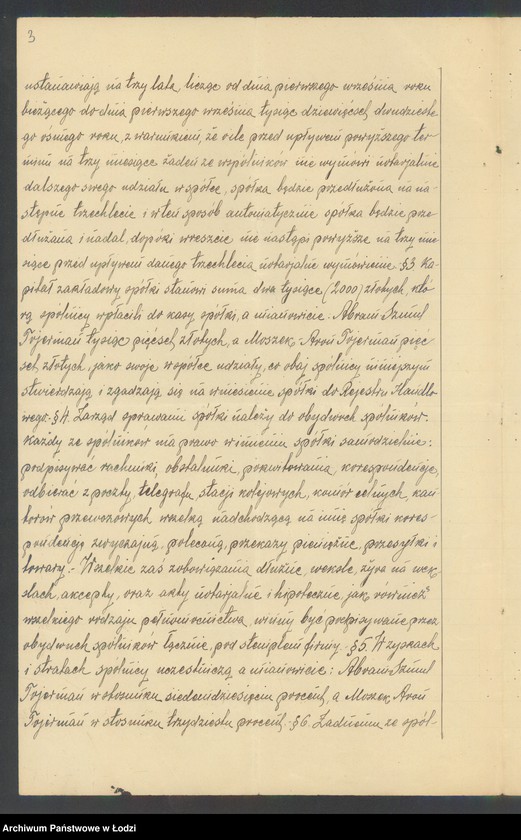 3
ustanawiają na trzy lata licząc od dnia pierwszego września roku
bieżącego do dnia pierwszego września tysiąc dziewięćset dwudzieste-
go ósmego roku, z warunkiem, że o ile przed upływem powyższego ter-
minu na trzy miesiące żaden ze wspólników nie wymówi notarjalnie
dalszego swego udziału w spółce, spółka będzie przedłużona na na-
stępne trzechlecie i w ten sposób automatycznie spółka będzie prze-
dłużana i nadal, dopóki wreszcie nie nastąpi powyższe na trzy mie-
siące przed upływem danego trzechlecia notarjalne wymówienie. §3. Ka-
pitał zakładowy spółki stanowi suma dwa tysiące (2000) złotych, któ-
rą spólnicy wpłacili do kasy spółki, a mianowicie: Abram Szmul
Fojerman tysiąc pięćset złotych, a Moszek Aron Fojerman pięć-
set złotych, jako swoje w spółce udziały, co obaj spólnicy niniejszym
stwierdzają i zgadzają się na wniesienie spółki do Rejestru Handlo-
wego. §4. Zarząd sprawami spółki należy do obydwóch spólników.
Każdy ze spólników ma prawo w imieniu spółki samodzielnie:
podpisywać rachunki, obstalunki, pokwitowania, korespondencję,
odbierać z poczty, telegrafu, stacji kolejowych, komór celnych, kan-
torów przewozowych wszelką nadchodzącą na imię spółki kores-
pondencję zwyczajną, poleconą, przekazy pieniężne, przesyłki i
towary. - Wszelkie zaś zobowiązania dłużne, weksle, żyra na wek-
slach, akcepty, oraz akty notarjalne i hipoteczne, jak również
wszelkiego rodzaju pełnomocnictwa, winny być podpisywane przez
obydwuch spólników łącznie, pod stemplem firmy. §5. W zyskach
i stratach spólnicy uczestniczą a mianowicie: Abram Szmul
Fojerman w stosunku siedemdziesięciu procent, a Moszek Aron
Fojerman w stosunku trzydziestu procent. §6. Żadnemu ze spól-
Archiwum Państwowe w Łodzi